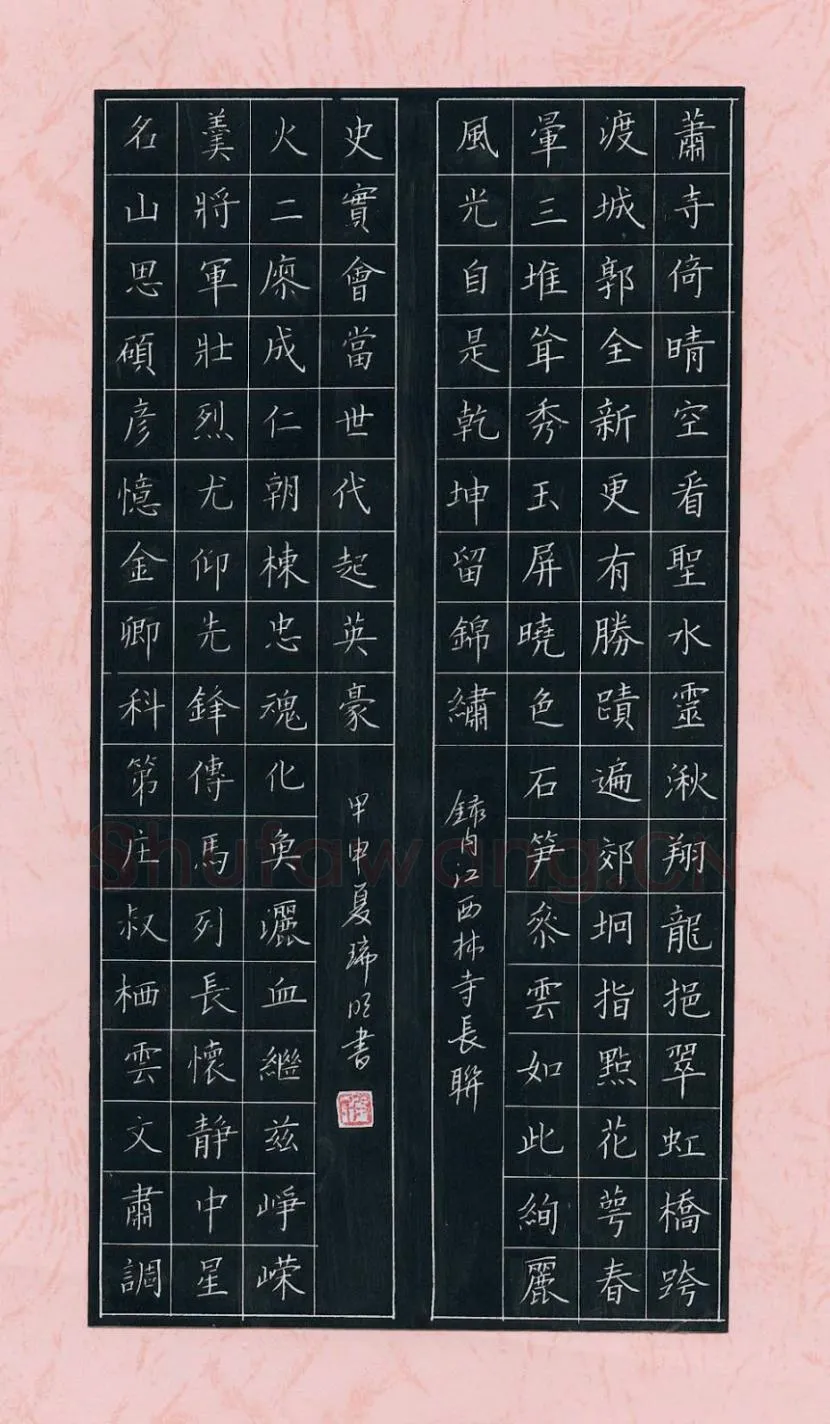 蕭寺倚晴空看聖水靈湫翔龍挹翠虹橋跨
渡城郭全新更有勝蹟遍郊坰指點花萼春
暈三堆耸秀玉屏曉色石笋叅雲如此絢麗
風光自是乾坤留錦繡
錄內江西林寺長聯
名山思碩彥憶金卿科第庄叔栖雲文肅調
羹將軍壯烈尤仰先鋒傳馬列長懷静中星
火二廖成仁朝棟忠魂化奐灑血繼兹峥嵘
史實會當世代起英豪
甲申夏書
Shufawang.CN